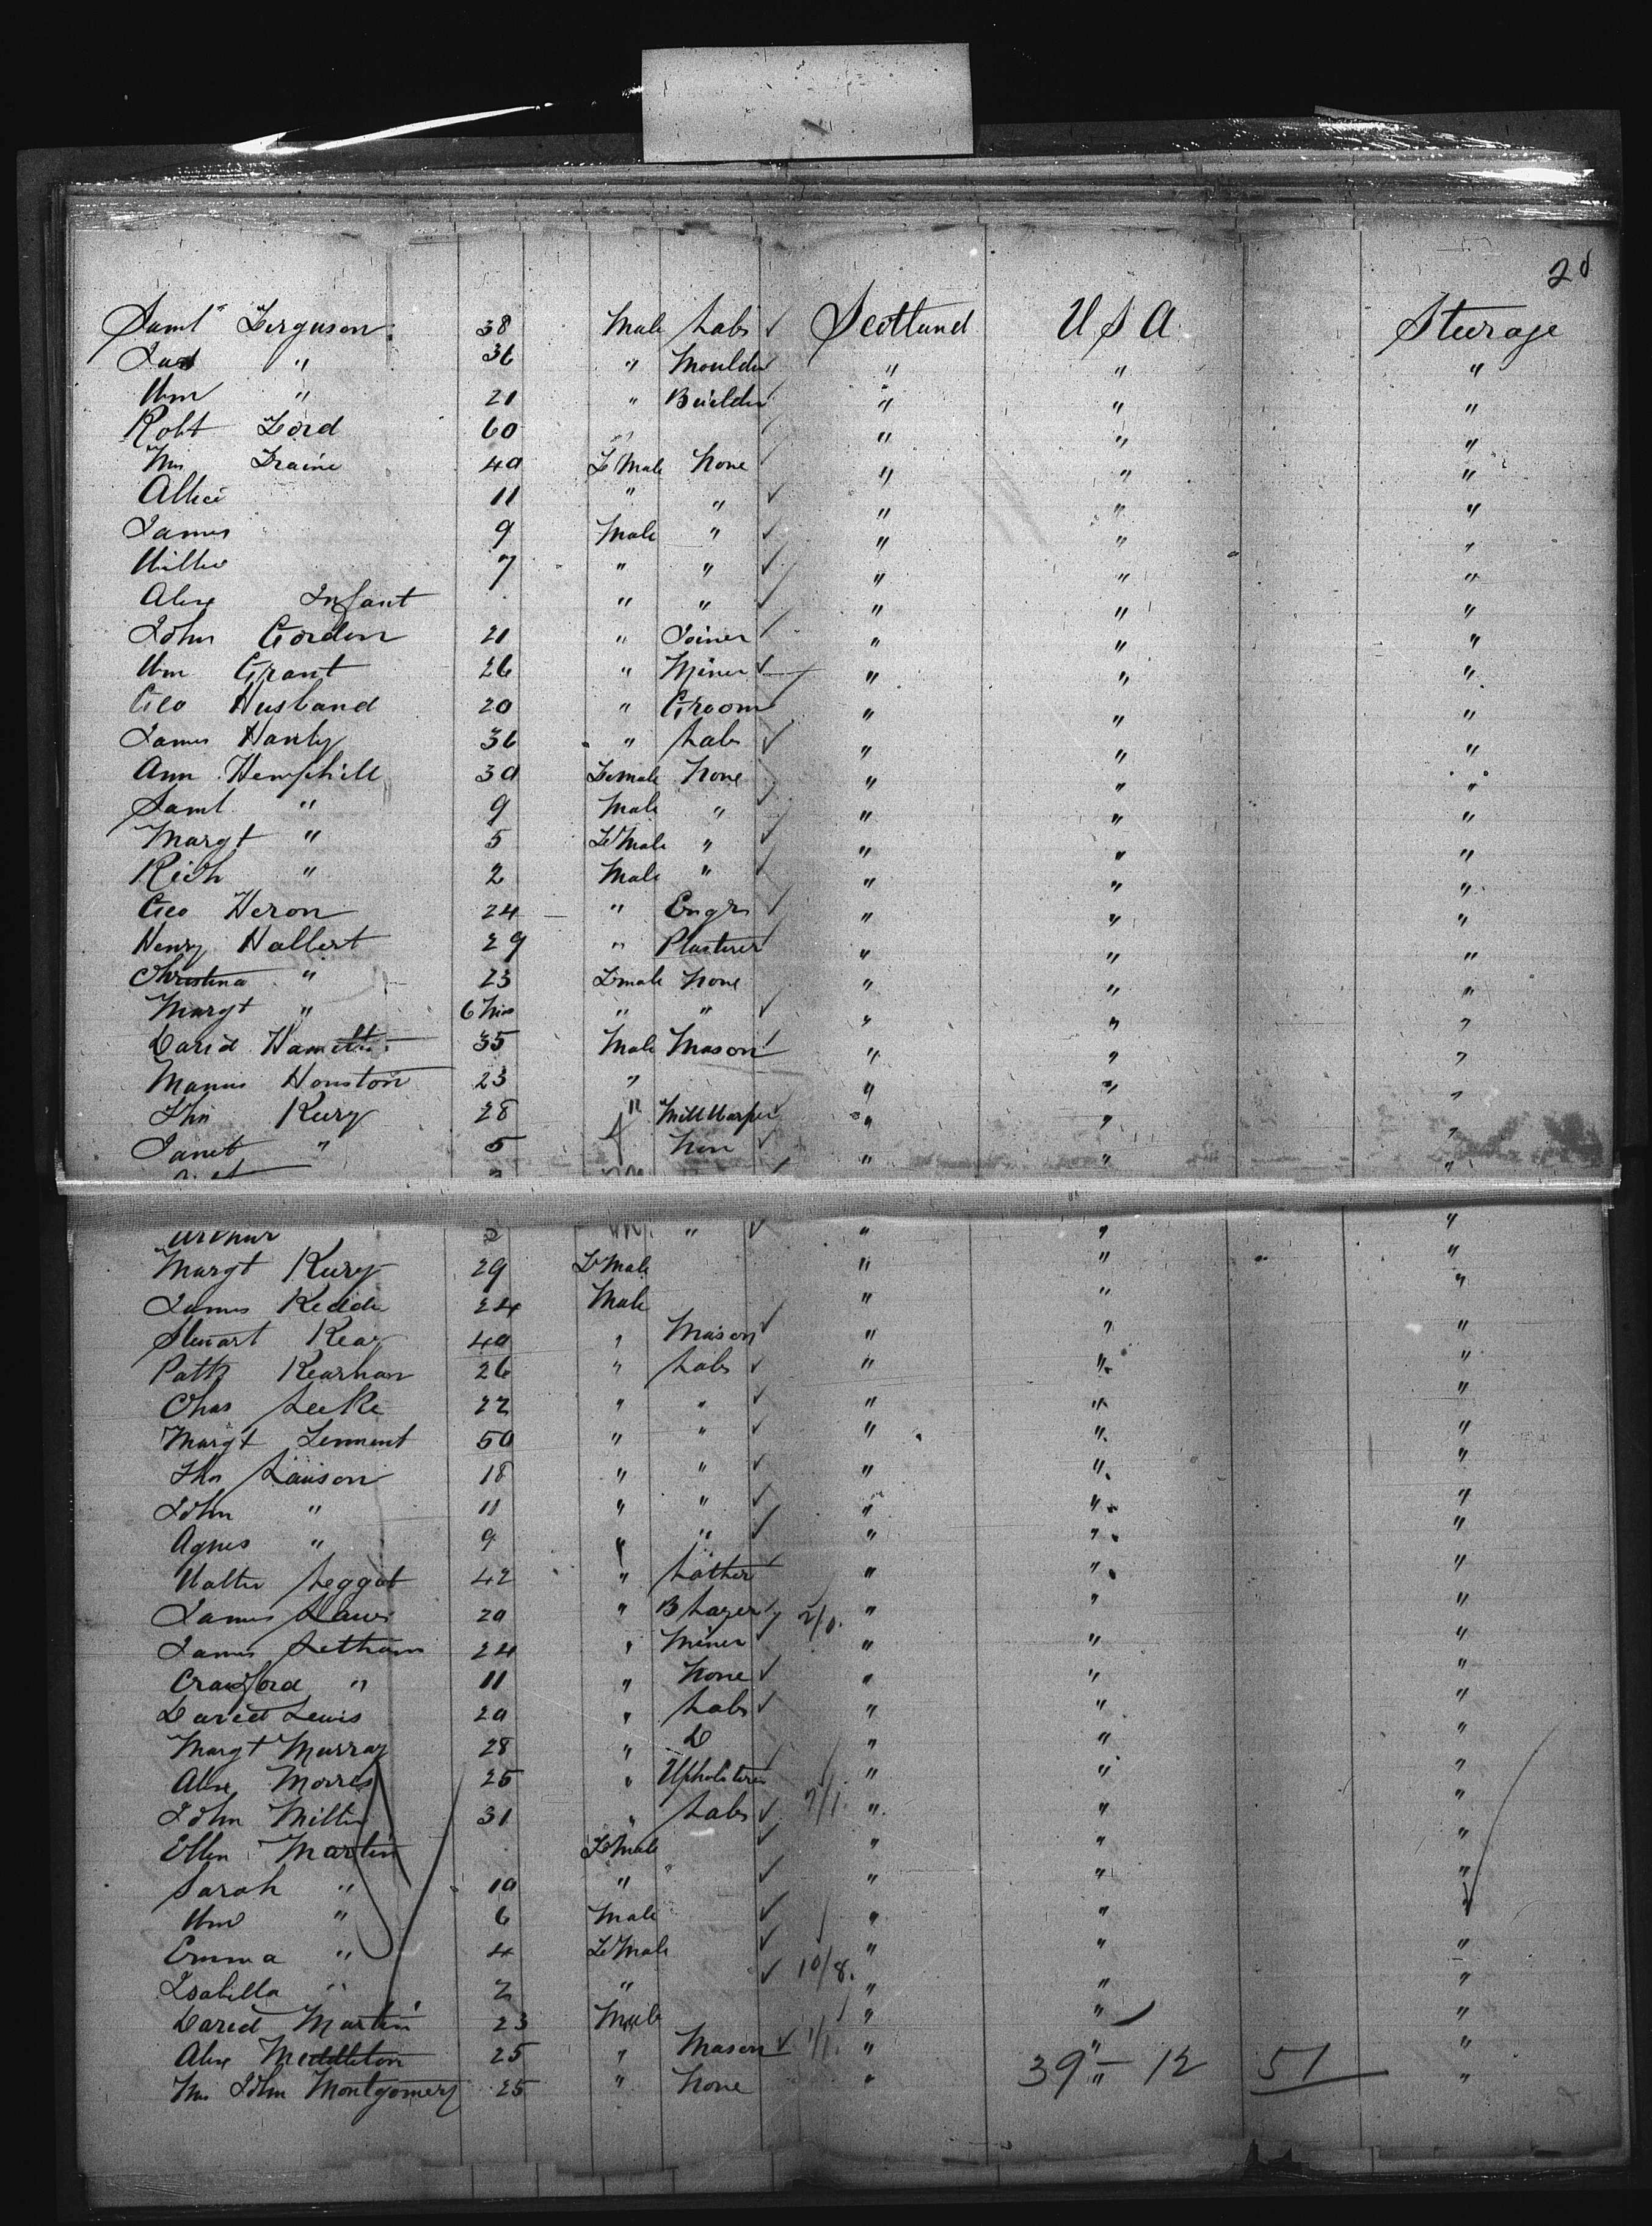 28
Saml Ferguson 38 Male Labr ✓ Scotland U S A Steerage
Jas " 36 " Moulder " " "
Wm " 21 " Builder " " "
Robt Ford 60 " " " "
Mrs Fraine 40 FeMale None " " "
Allice 11 " " ✓ " " "
James 9 Male " ✓ " " "
Willie 7 " " ✓ " " "
Alex Infant " " ✓ " " "
John Gordon 21 " Joiner " " "
Wm Grant 26 " Miner ✓ " " "
Geo Husband 20 " Groom " " "
James Hanly 36 " Labr ✓ " " "
Ann Hemphill 30 Female None " " "
Saml " 9 Male " " " "
Margt " 5 FeMale " ✓ " " "
Rich " 2 Male " ✓ " " "
Geo Heron 24 " Engr ✓ " " "
Henry Halbert 29 " Plasterer " " "
Christina " 23 Female None " " "
Margt " 6 Mos " " ✓ " " "
David 35 Male Mason " " "
Houston 23 " " " "
Thos Kury 28 " " " "
Janet " 5 Non " " "
Arthur " ✓ " " "
Margt Kury 29 FeMale " " "
James Keddie 24 Male " " "
Stewart Keay 40 " Mason ✓ " " "
Patk Kearnan 26 " Labr ✓ " " "
Chas Leeke 22 " " ✓ " " "
Margt Lennent 50 " " ✓ " " "
Thos Lawson 18 " " ✓ " " "
John " 11 " " ✓ " " "
Agnes " 9 " " ✓ " " "
Walter Leggat 42 " Lather " " "
James Laws 20 " B Layer 2/0. " " "
James Letham 24 " Miner " " "
Crawford " 11 " None ✓ " " "
David Lewis 20 " Labr ✓ " " "
Margt Murray 28 " D " " "
Alex Morris 25 " Upholsterer " " "
John Miller 31 " Labr ✓ 7/1. " " "
Ellen Martin FeMale ✓ " " "
Sarah " 10 " ✓ " " "
Wm " 6 Male ✓ " " "
Emma " 4 FeMale ✓ " " "
Isabilla " 2 " ✓ 10/8. " " "
David Martin 23 Male " " "
Alex Middleton 25 " Mason ✓ 1/1. " " "
Mrs John Montgomery 25 " None " " "
39 — 12 51